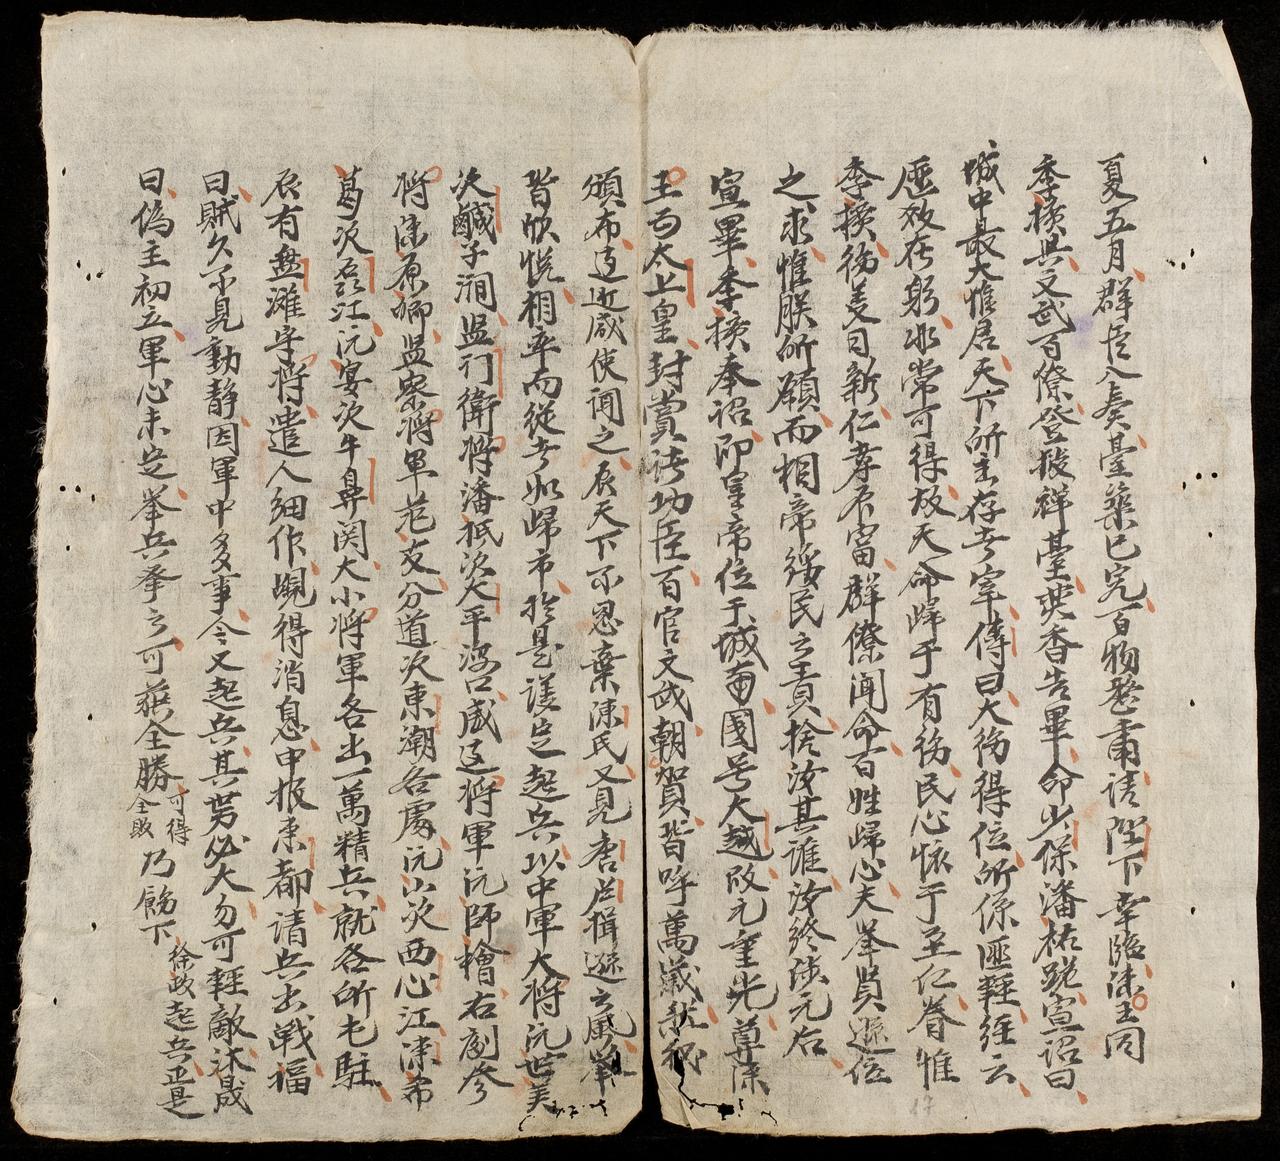 夏五月群臣入奏臺築已完百物整肅請陛下幸臨陳主同
李擴與文武百僚登授祥臺焚香告畢命少保潘祐跪宣詔曰
城中最大惟居天下所主存者寧傳曰大德得位所係匪輕經云
歷數在躬非常可得故天命歸于有德民心懷于至仁眷惟
李擴德美日新仁孝辰富群僚聞命百姓歸心夫舉賢遜位
之求惟朕所願而相帝綏民之責捨汝其誰汝終陟元后
宣畢李擴奉詔即皇帝位于城南國号大越改元重光尊陳
王为太上皇封賞諸功臣百官文武朝賀皆呼萬歲
頒布遠近咸使聞之辰天下不忍棄陳氏又見唐虞揖遜之風舉
皆欣悅相率而從者如歸市於是謹定起兵以中軍大將沅世美
次鹹子𣴓监门衛將潘抵次大平海口威远將軍沅師檜右副参
將陳原卿监察將軍范友分道次東潮各處沅 次西心江陳希
葛次磊江沅宴次牛鼻関大小將軍各出一萬精兵就各所屯駐
辰有盘灘守將遣人細作覘得消息申报東都請兵出戰福
曰賊久不見動静因軍中多事今又起兵其势必大勿可輕敵沐晟
曰偽主初立軍心未定举兵拳之可獲全勝可得全敗乃飭下徐政起兵正是